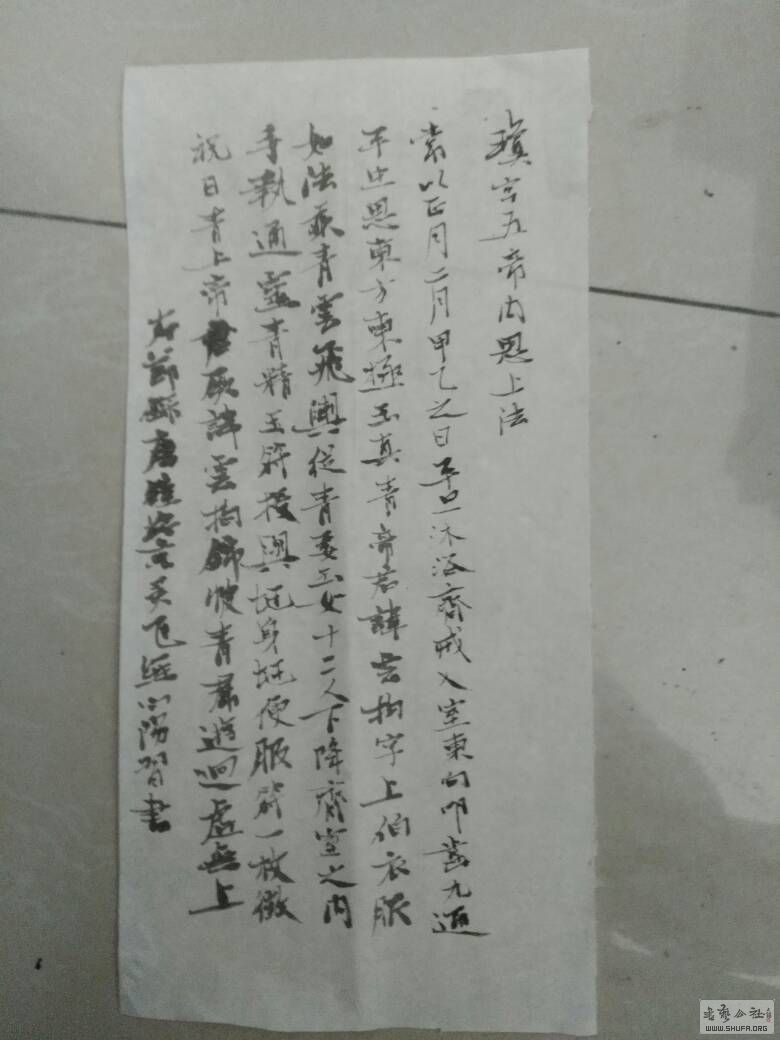 瓊宮五帝內思上法
常以正月二月甲乙之日平旦沐浴齊戒入室東向叩齒九通
平坐思東方東極玉真青帝君諱云拘字上伯衣服
如法乘青雲飛輿從青要玉女十二人下降齊室之內
手執通靈青精玉符授與兆身兆便服符一枚微
祝曰青上帝君厥諱雲拘錦帔青裙遊迴虛無上
右節臨唐鍾紹京灵飞經向陽習書
书艺公社
WWW.SHUFA.ORG